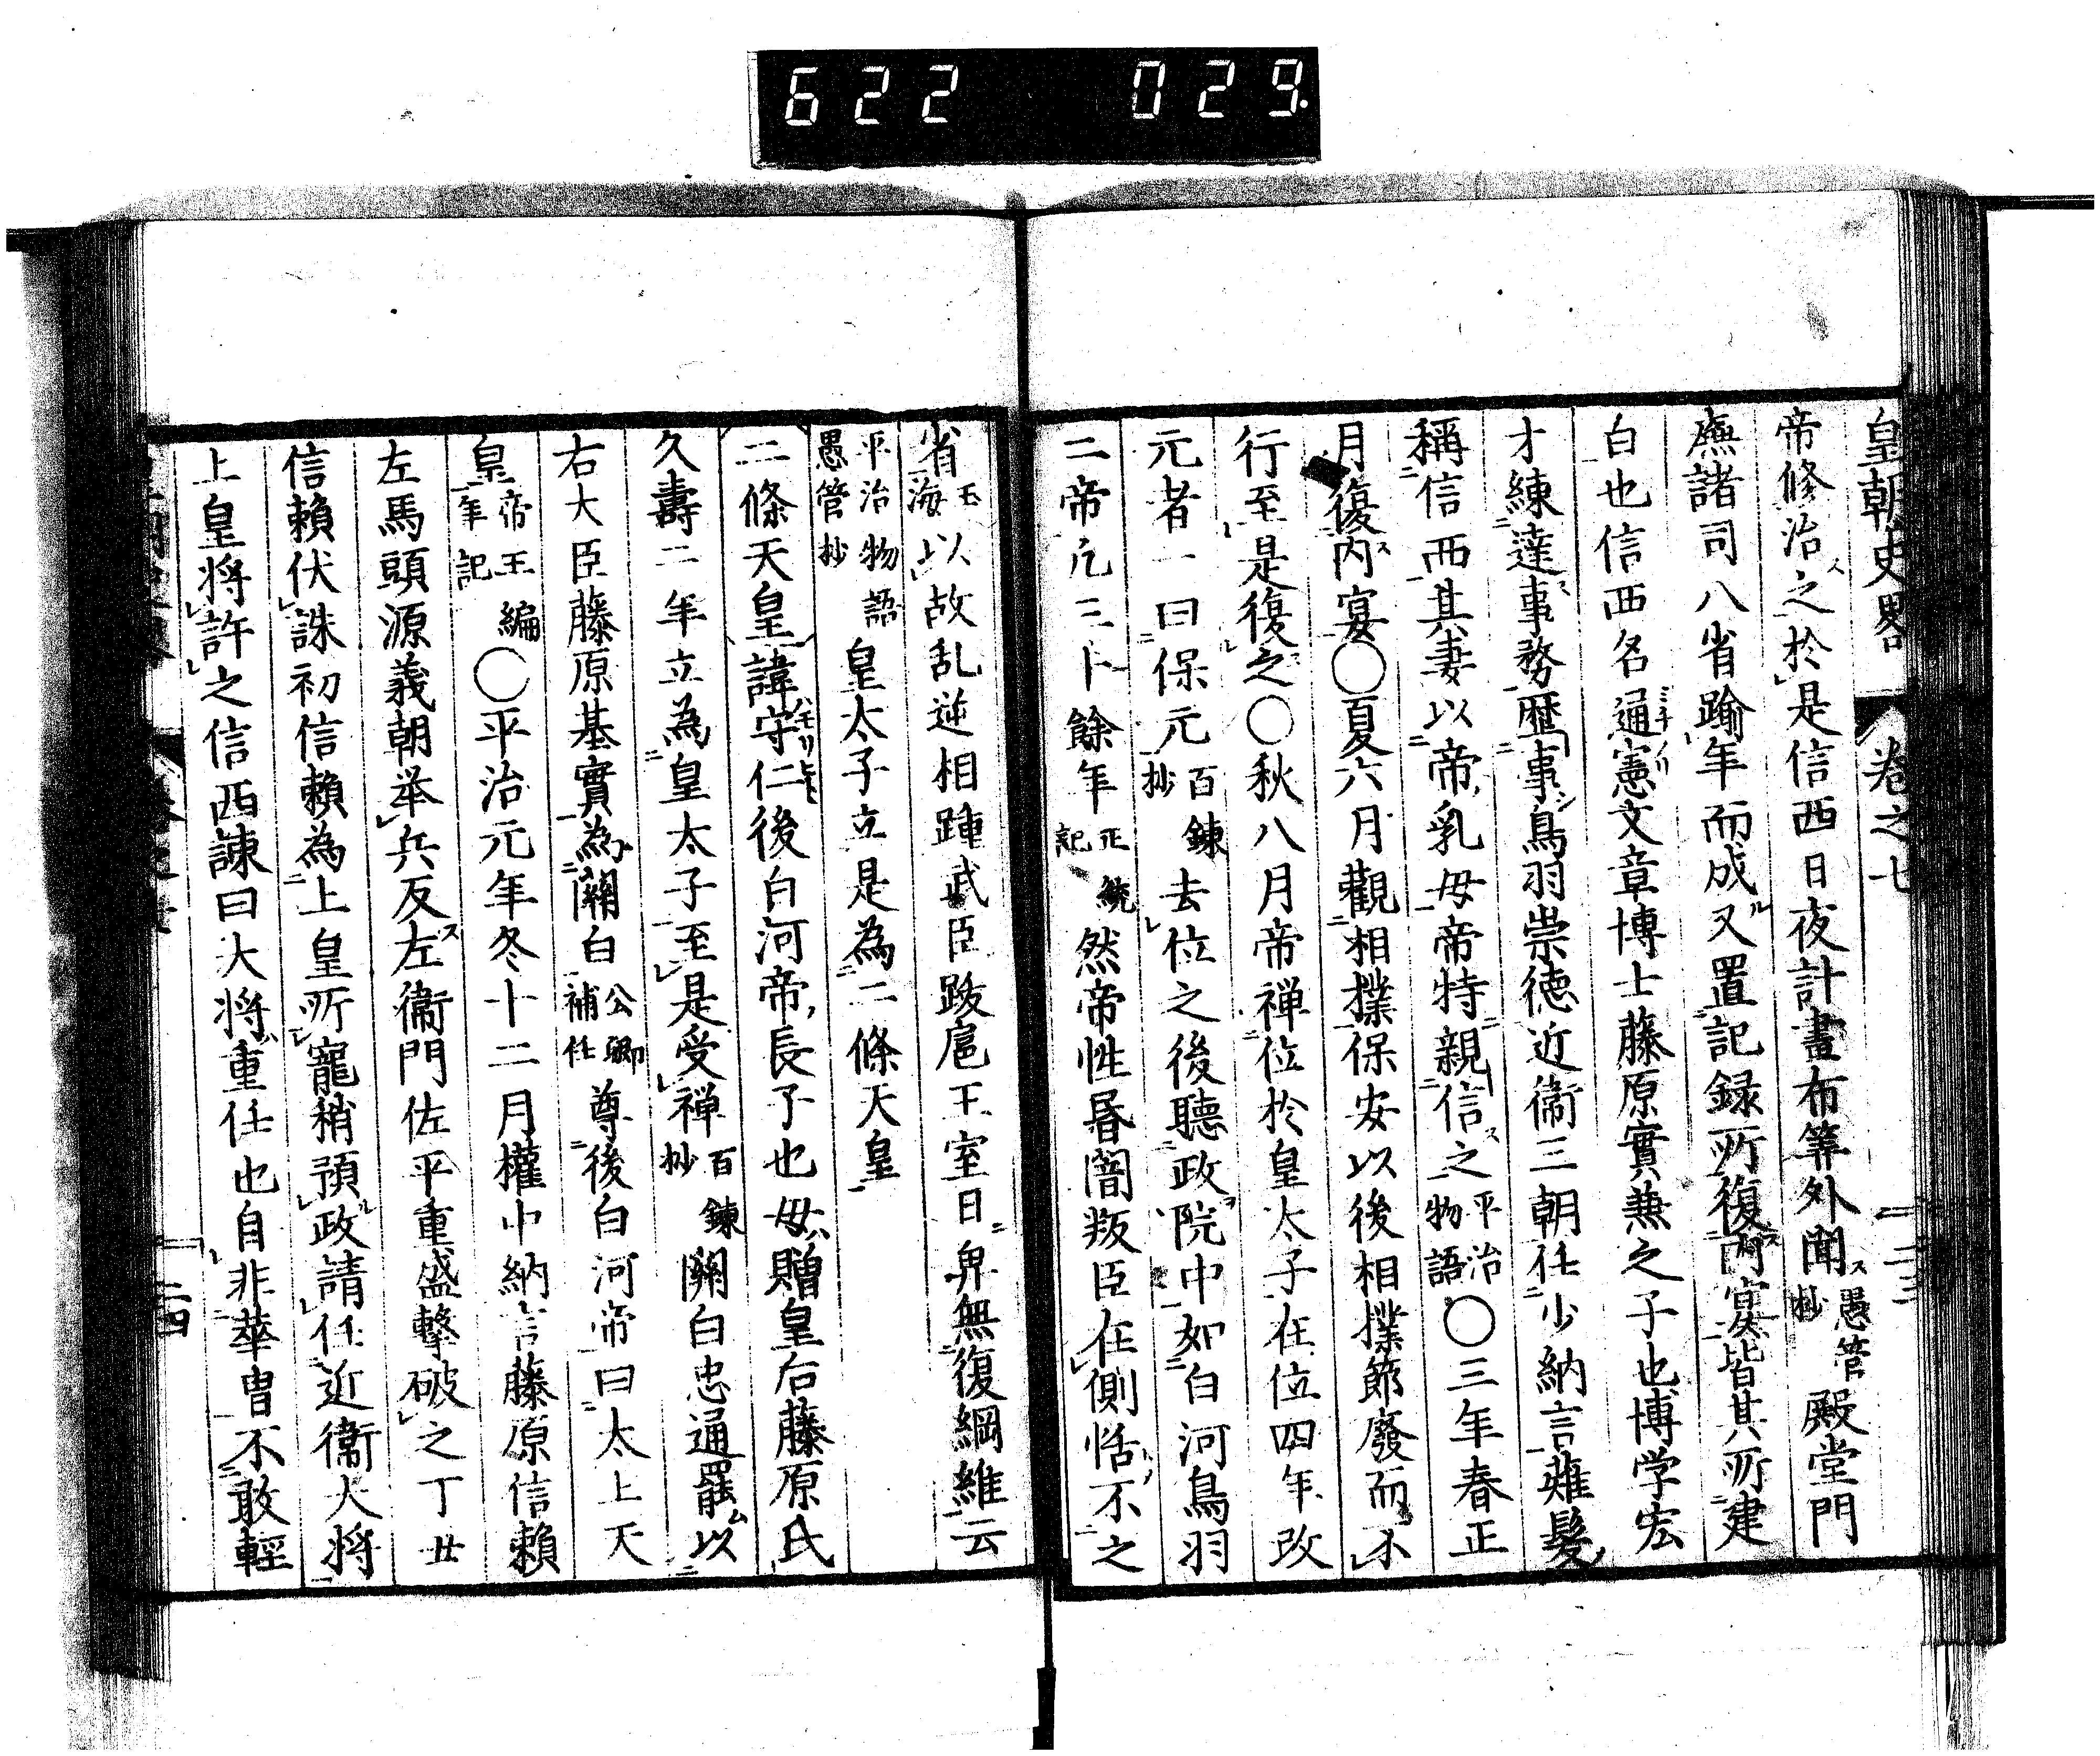 622 029.
皇朝史畧 卷之七
帝修治之於是信西日夜計畫布筭外聞愚管抄殿堂門
廡諸司八省踰年而成又置記録所復内宴皆其所建
白也信西名通憲文章博士藤原實兼之子也博学宏
才練達事務歴事鳥羽崇徳近衞三朝任少納言薙髮
稱信西其妻以帝乳母帝特親信之平治物語〇三年春正
月復内宴〇夏六月觀相撲保安以後相撲節廢而不
行至是復之〇秋八月帝禅位於皇太子在位四年改
元者一曰保元百鍊抄去位之後聽政院中如白河鳥羽
二帝凢三十餘年正統記然帝性昏闇叛臣在側恬不之
省玉海以故乱逆相踵武臣跋扈王室日卑無復綱維云
平治物語愚管抄皇太子立是為二條天皇
二條天皇諱守仁後白河帝長子也母贈皇后藤原氏
久壽二年立為皇太子至是受禅百鍊抄關白忠通罷以
右大臣藤原基實為關白公卿補任尊後白河帝曰太上天
皇帝王編年記〇平治元年冬十二月權中納言藤原信賴
左馬頭源義朝举兵反左衞門佐平重盛擊破之丁丑
信賴伏誅初信賴為上皇所寵稍預政請任近衞大将
上皇将許之信西諫曰大将重任也自非華冑不敢輕
二四